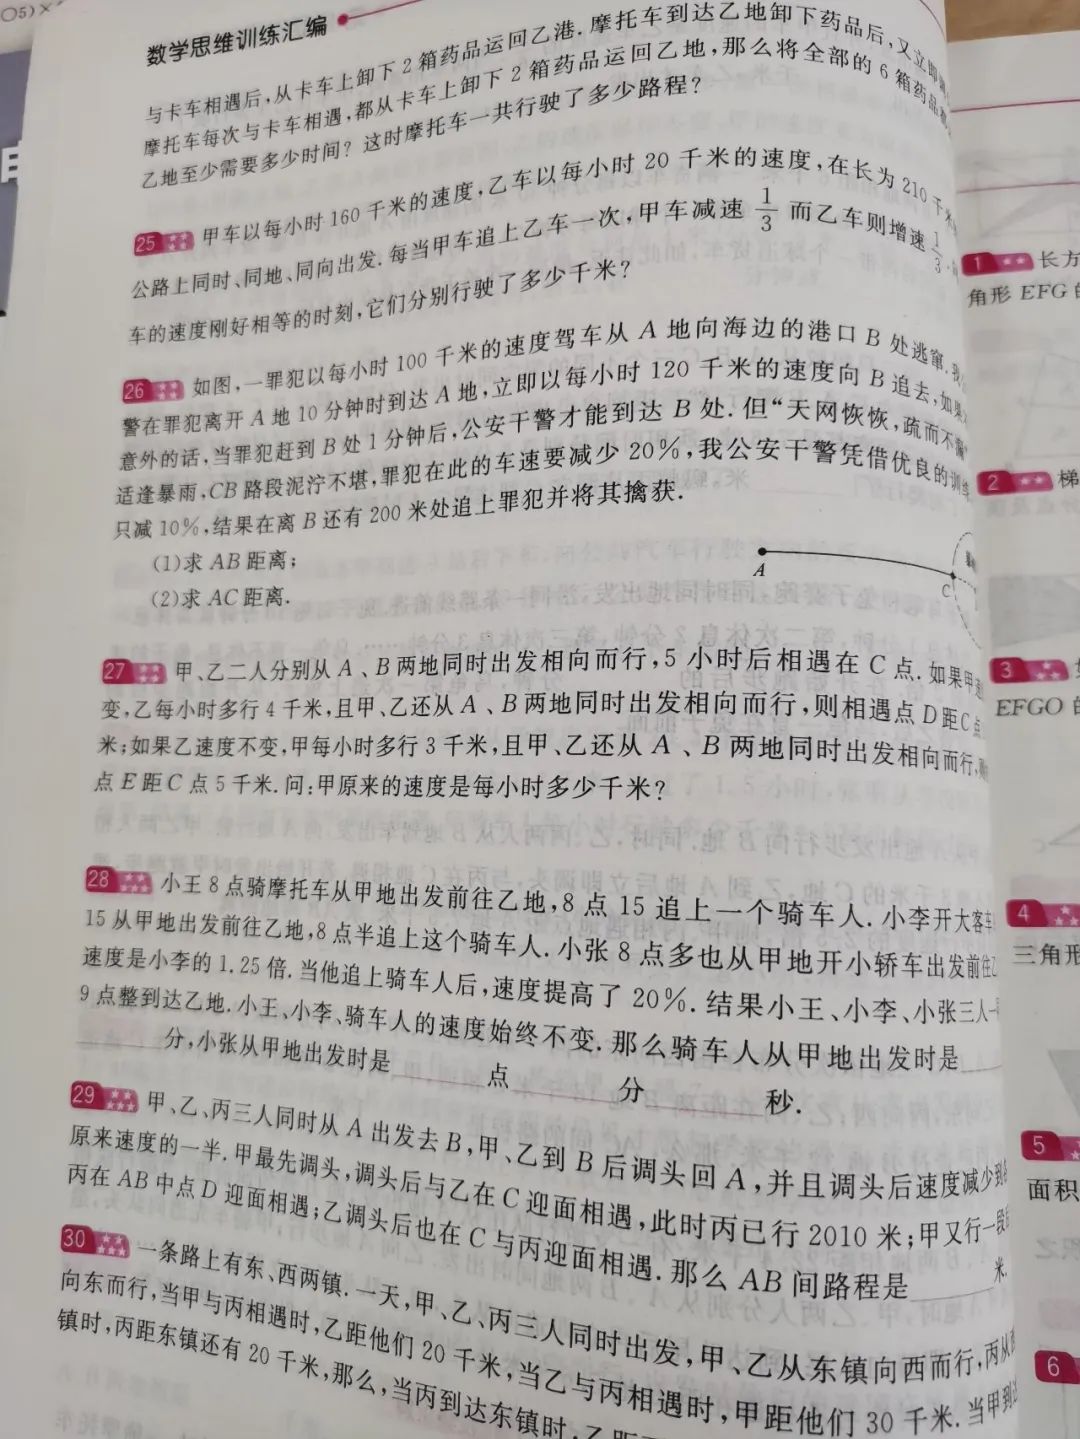 数学思维训练汇编
与卡车相遇后,从卡车上卸下 2 箱药品运回乙港. 摩托车到达乙地卸下药品后,又立即
摩托车每次与卡车相遇,都从卡车上卸下 2 箱药品运回乙地,那么将全部的 6 箱药品
乙地至少需要多少时间? 这时摩托车一共行驶了多少路程?
25 甲车以每小时 160 千米的速度,乙车以每小时 20 千米的速度,在长为 210 千米
公路上同时、同地、同向出发. 每当甲车追上乙车一次,甲车减速 1/3 而乙车则增速 1/3.
车的速度刚好相等的时刻,它们分别行驶了多少千米?
26 如图,一罪犯以每小时 100 千米的速度驾车从 A 地向海边的港口 B 处逃窜.
警在罪犯离开 A 地 10 分钟时到达 A 地,立即以每小时 120 千米的速度向 B 追去,如果
意外的话,当罪犯赶到 B 处 1 分钟后,公安干警才能到达 B 处. 但“天网恢恢,疏而不漏”
适逢暴雨,CB 路段泥泞不堪,罪犯在此的车速要减少 20%,我公安干警凭借优良的训练
只减 10%,结果在离 B 还有 200 米处追上罪犯并将其擒获.
(1)求 AB 距离;
(2)求 AC 距离.
A
C
27 甲、乙二人分别从 A 、B 两地同时出发相向而行,5 小时后相遇在 C 点. 如果甲速
变,乙每小时多行 4 千米,且甲、乙还从 A 、B 两地同时出发相向而行,则相遇点 D 距 C 点
米;如果乙速度不变,甲每小时多行 3 千米,且甲、乙还从 A 、B 两地同时出发相向而行,
点 E 距 C 点 5 千米. 问:甲原来的速度是每小时多少千米?
28 小王 8 点骑摩托车从甲地出发前往乙地,8 点 15 追上一个骑车人. 小李开大客车
15 从甲地出发前往乙地,8 点半追上这个骑车人. 小张 8 点多也从甲地开小轿车出发前往乙
速度是小李的 1.25 倍. 当他追上骑车人后,速度提高了 20%. 结果小王、小李、小张三人一
9 点整到达乙地. 小王、小李、骑车人的速度始终不变. 那么骑车人从甲地出发时是
分,小张从甲地出发时是 点 分 秒.
29 甲、乙、丙三人同时从 A 出发去 B,甲、乙到 B 后调头回 A,并且调头后速度减少到
原来速度的一半. 甲最先调头,调头后与乙在 C 迎面相遇,此时丙已行 2010 米;甲又行一段
丙在 AB 中点 D 迎面相遇;乙调头后也在 C 与丙迎面相遇. 那么 AB 间路程是 米.
30 一条路上有东、西两镇. 一天,甲、乙、丙三人同时出发,甲、乙从东镇向西而行,丙从西
向东而行,当甲与丙相遇时,乙距他们 20 千米,当乙与丙相遇时,甲距他们 30 千米. 当甲到达
镇时,丙距东镇还有 20 千米,那么,当丙到达东镇时,乙距
1 长方
角形 EFG
2 梯
3
EFGO
4
三角形
5
面积
6